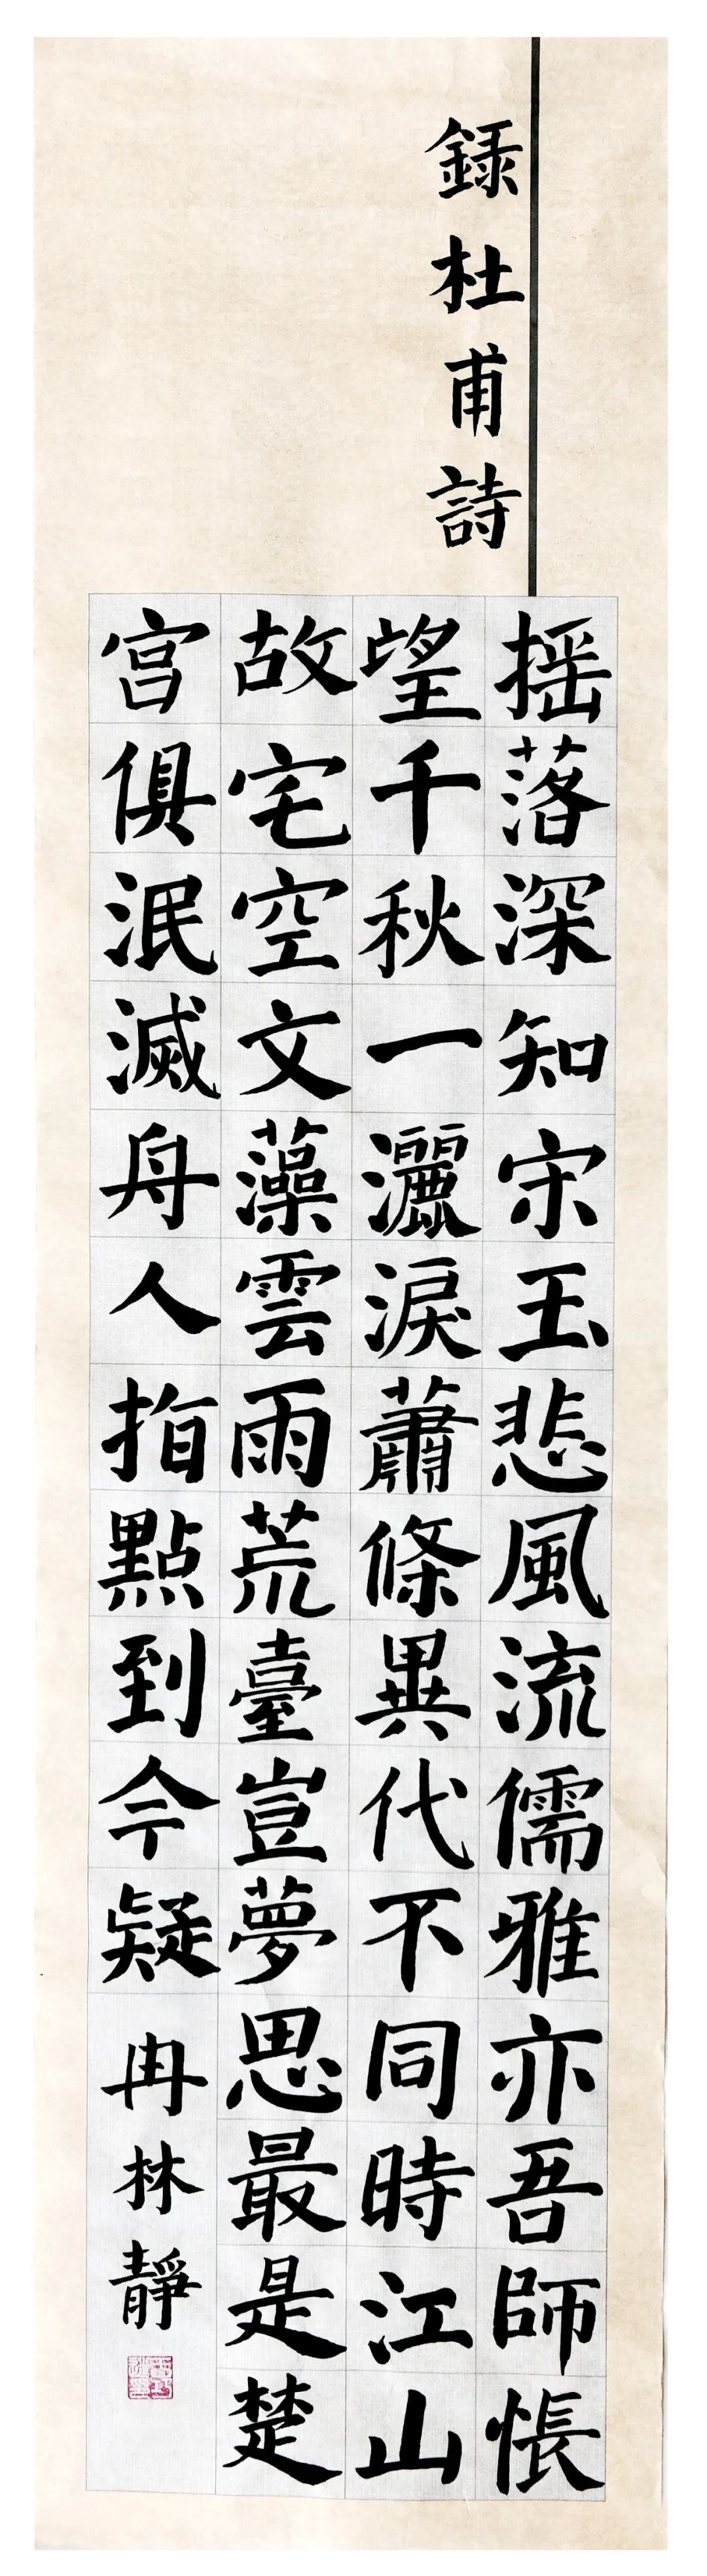 録杜甫詩
摇落深知宋玉悲風流儒雅亦吾師悵
望千秋一灑淚蕭條異代不同時江山
故宅空文藻雲雨荒臺豈夢思最是楚
宮俱泯滅舟人指點到今疑
冉林靜